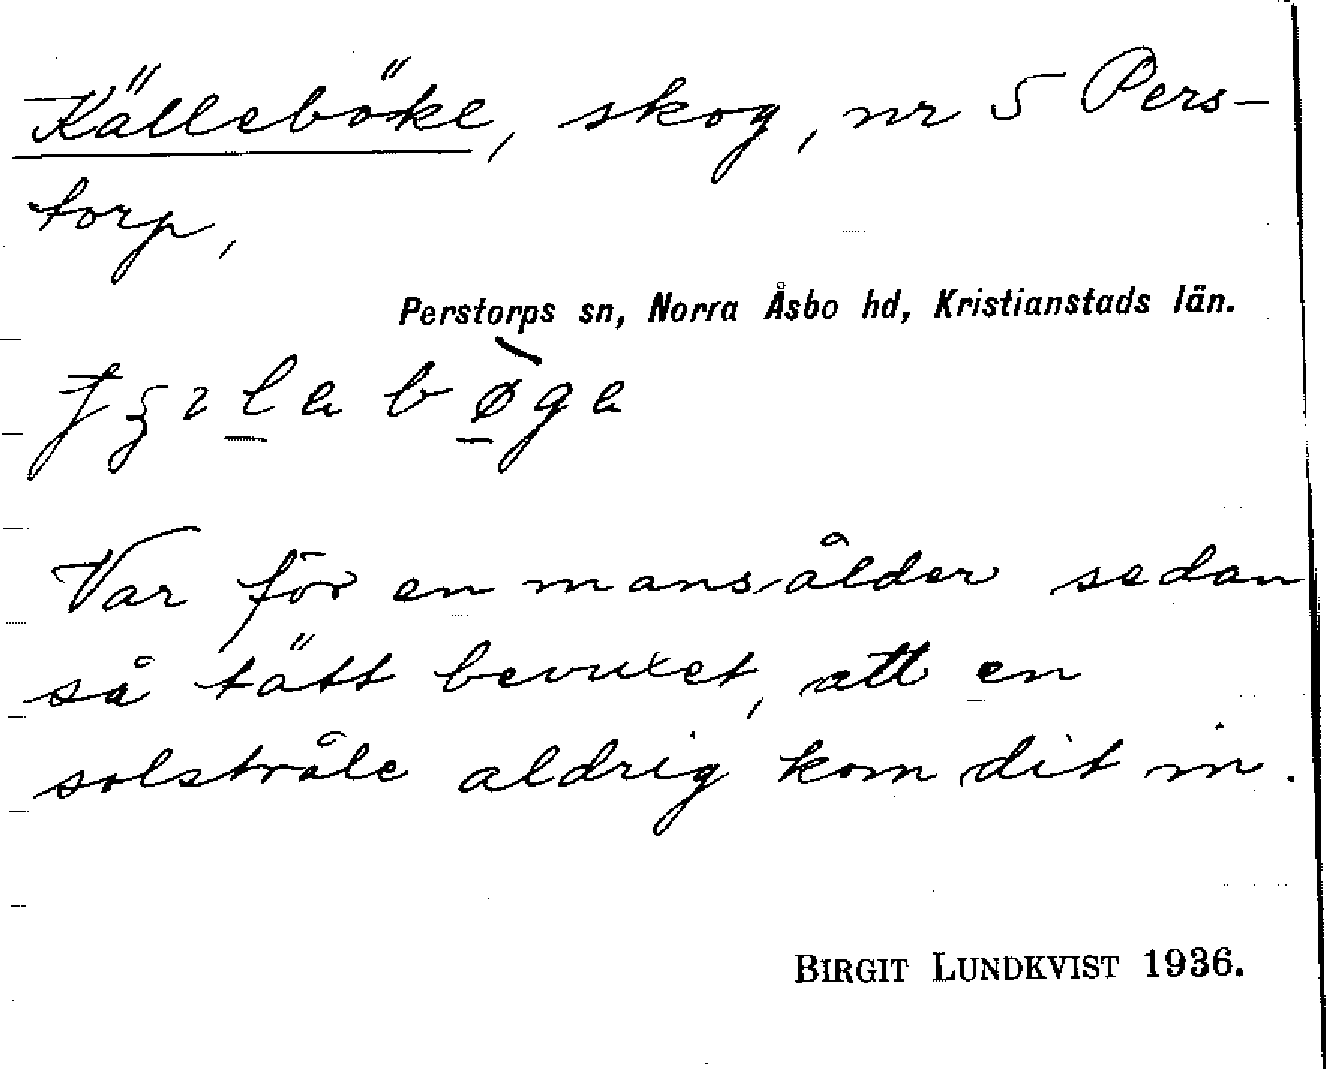 Källeböke, skog, nr 5 Pers-
torp,
Perstorps sn, Norra Åsbo hd, Kristianstads län.
Var för en mansålder sedan
så tätt bevuxet, att en
solstråle aldrig kom dit in.
BIRGIT LUNDKVIST 1936.